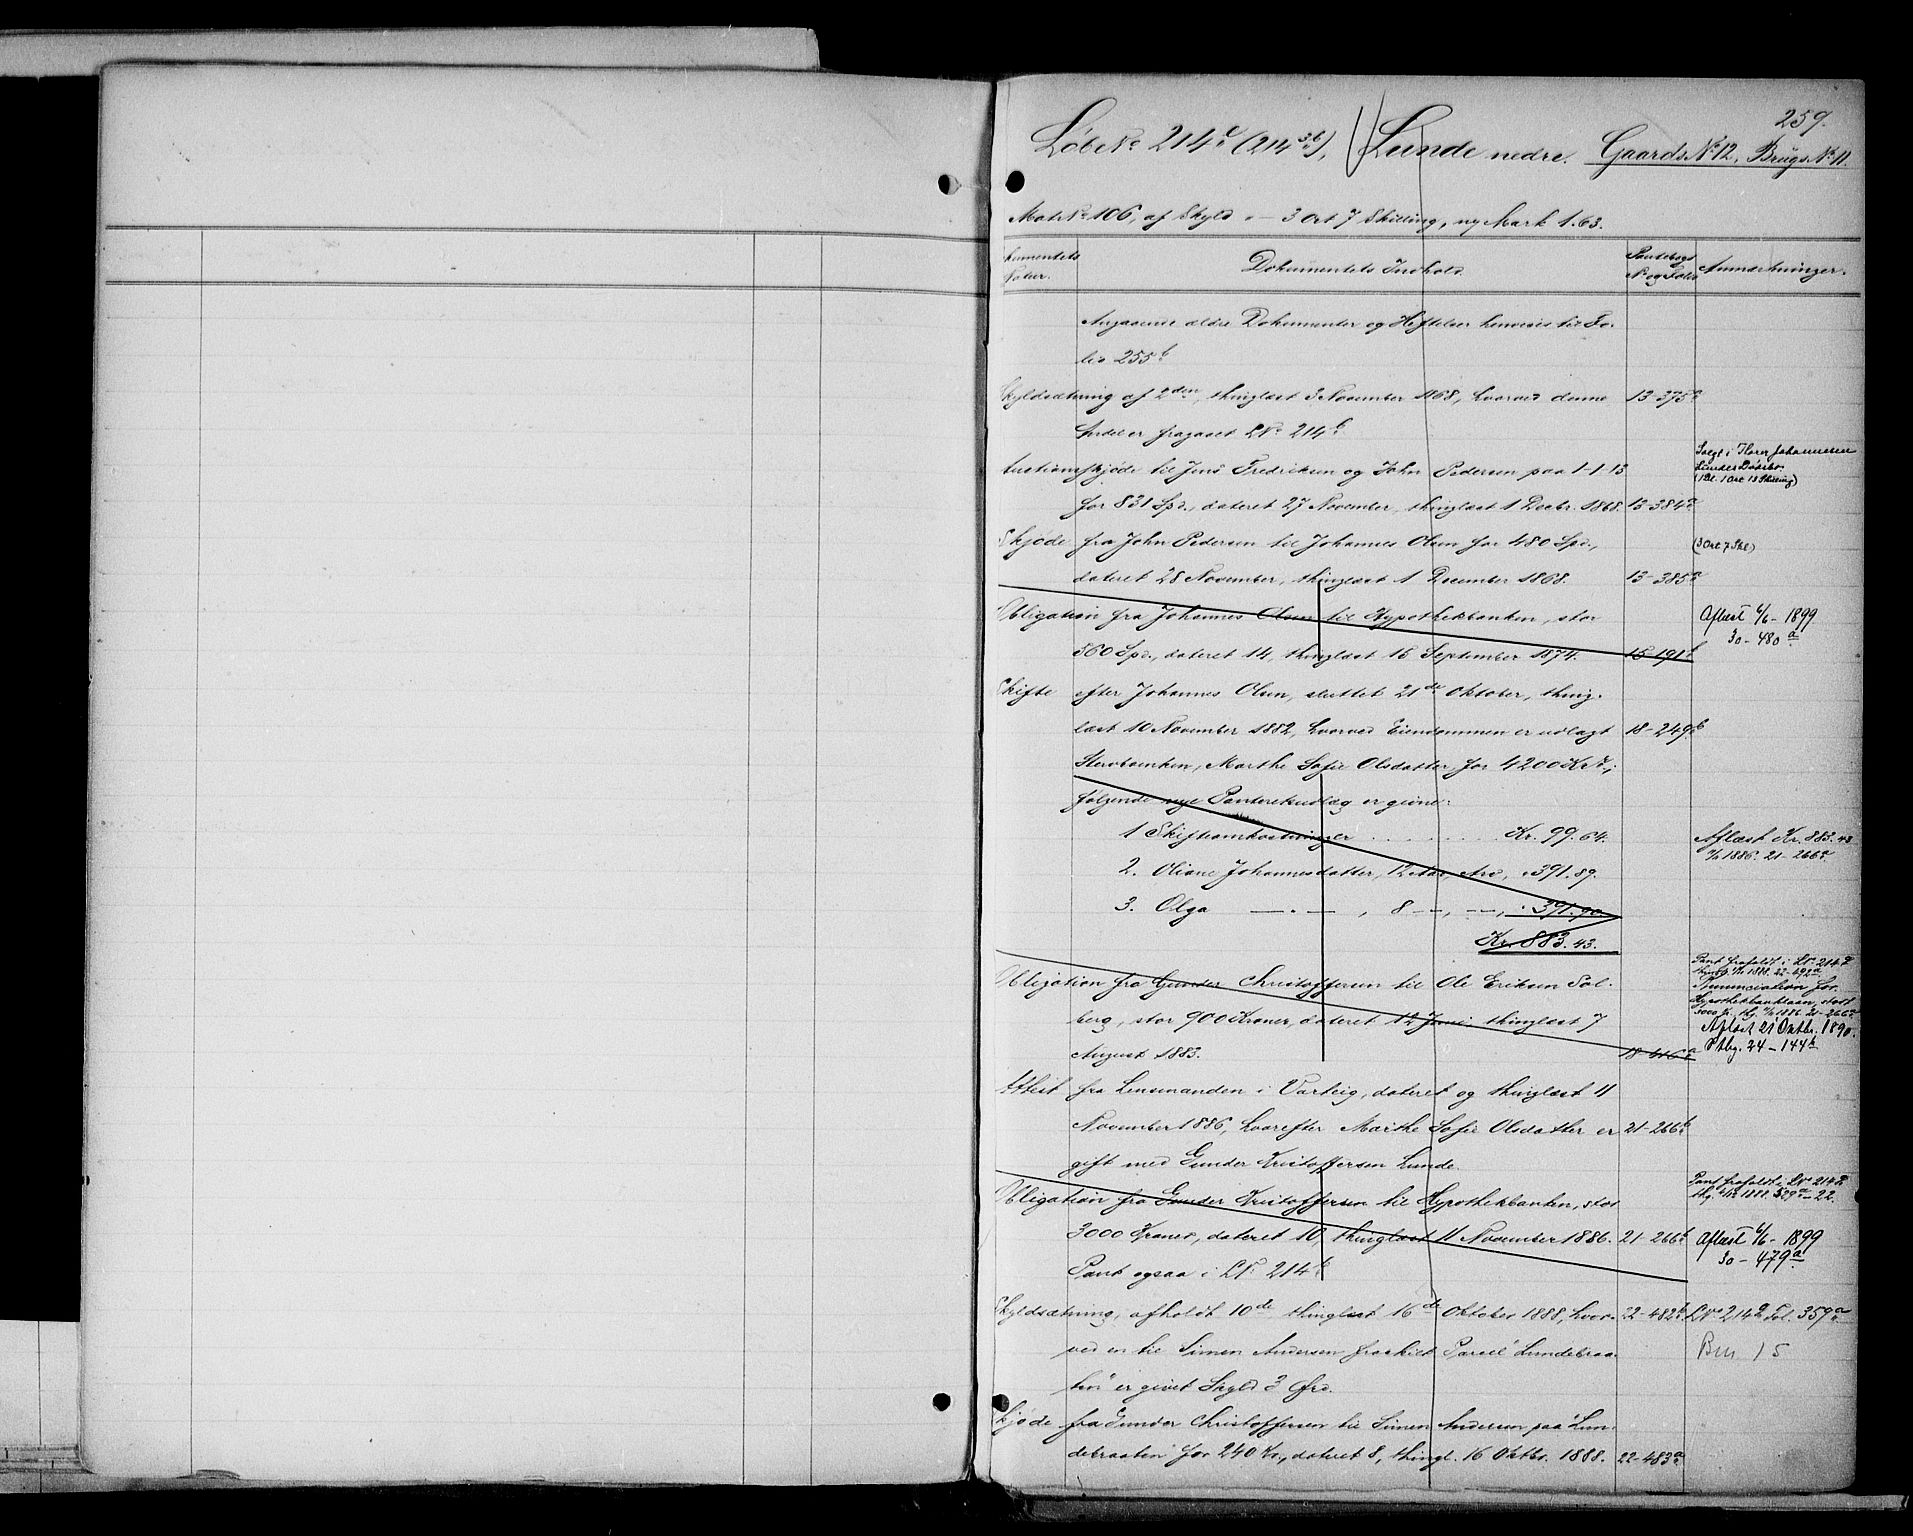 259.
Løbe No 214c (214 3b), Lunde nedre. Gaards No 12, Brugs No 11.
Mat No 106, af Skyld " – 3 Ort 7 Skilling, ny Mark 1.63.
kumentets Natur. Dokumentets Indhold. Pantebogs No og Folio Anmærkninger.
Angaaende ældre Dokumenter og Heftelser henvises til Fo-
lio 255b
Skyldsætning af 2den, thinglæst 3 November 1868, hvorved denne 13-375a
Andel er fragaaet LNo 214b
Auctionsskjøde til Jens Fredriksen og John Pedersen paa 1-1-13
Solgt i Thorer Johannesen
Lundes Dødsbo.
(1 Dl. 1 Ort 13 Skilling)
for 831 Spd., dateret 27 November, thinglæst 1 Decbr. 1868. 13-384a
Skjøde fra John Pedersen til Johannes Olsen for 480 Spd., (3 Ort 7 Skl)
dateret 28 November, thinglæst 1 December 1868. 13-385a
Obligation fra Johannes Olsen til Hypothekbanken, stor Aflæst 6/6 - 1899
560 Spd., dateret 14, thinglæst 15 September 1874. 15-191b 30-480a
Skifte efter Johannes Olsen, sluttet 21de Oktober, thing-
læst 10 November 1882, hvorved Eiendommen er udlagt 18-249b
Stervboenken, Marthe Sofie Olsdatter, for 4200 Kr.;
følgende nye Panteretsudlæg er givne:
1 Skifteomkostninger . . . . . . . Kr. 99.64. Aflæst Kr. 883.43
11/11 1886. 21-266a
2. Oliane Johannesdatter, 12 Aar, Arv, " 391.89.
3. Olga —"—, 8 —, —, " 391.90
Kr. 883.43.
Obligation fra Gunder Christoffersen til Ole Eriksen Sol-
berg, stor 900 Kroner, dateret 12 Juni, thinglæst 7
August 1883. 18-416a
Pant frafaldt i LNo 214
1888. 22-492a
Renunciation for
Hypothekbanklaan, stort
3000 Kr. thg. 11/11 1886 21-266
Aflæst 21 Oktbr. 1890.
Ptbg. 24-144b
Attest fra Lensmanden i Varteig, dateret og thinglæst 11
November 1886, hvorefter Marthe Sofie Olsdatter er 21-266b
gift med Gunder Kristoffersen Lunde.
Obligation fra Gunder Kristoffersen til Hypothekbanken, stor
Pant frafaldt i LNo 214
thg. 1888. 22.
3000 Kroner, dateret 10, thinglæst 11 November 1886. 21-266b Aflæst 6/6 - 1899
30-479a
Pant ogsaa i LNo 214b
Skyldsætning, afholdt 10de thinglæst 16de Oktober 1888, hvor- 22-482b LNo 214q Fol. 359a
ved en til Simen Andersen fraskilt Parcel "Lundebraa- Bn 15
ten" er givet Skyld 3 Øre.
Skjøde fra Gunder Christoffersen til Simen Andersen paa "Lun-
debraaten" for 240 Kr., dateret 8, thingl. 16 Oktbr. 1888. 22-483a